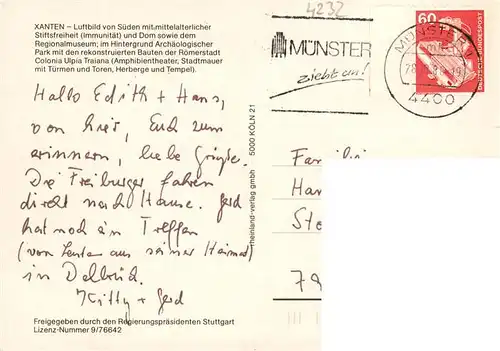 XANTEN – Luftbild von Süden mit mittelalterlicher
Stiftsfreiheit (Immunität) und Dom sowie dem
Regionalmuseum; im Hintergrund Archäologischer
Park mit den rekonstruierten Bauten der Römerstadt
Colonia Ulpia Traiana (Amphibientheater, Stadtmauer
mit Türmen und Toren, Herberge und Tempel).
Hallo Edith + Hans,
von hier, Euch zum
erinnern, liebe Grüße.
Die Freiburger fahren
direkt nach Hause. Gerd
hat noch ein Treffen
(von Leuten aus seiner Heimat)
in Delbrück.
Kitty + Gerd
Freigegeben durch den Regierungspräsidenten Stuttgart
Lizenz-Nummer 9/76642
rheinland-verlag gmbh 5000 KÖLN 21
4232
MÜNSTER
zieht an!
MÜNSTER
4400
60
DEUTSCHE BUNDESPOST
Familie
Han
Ste
79